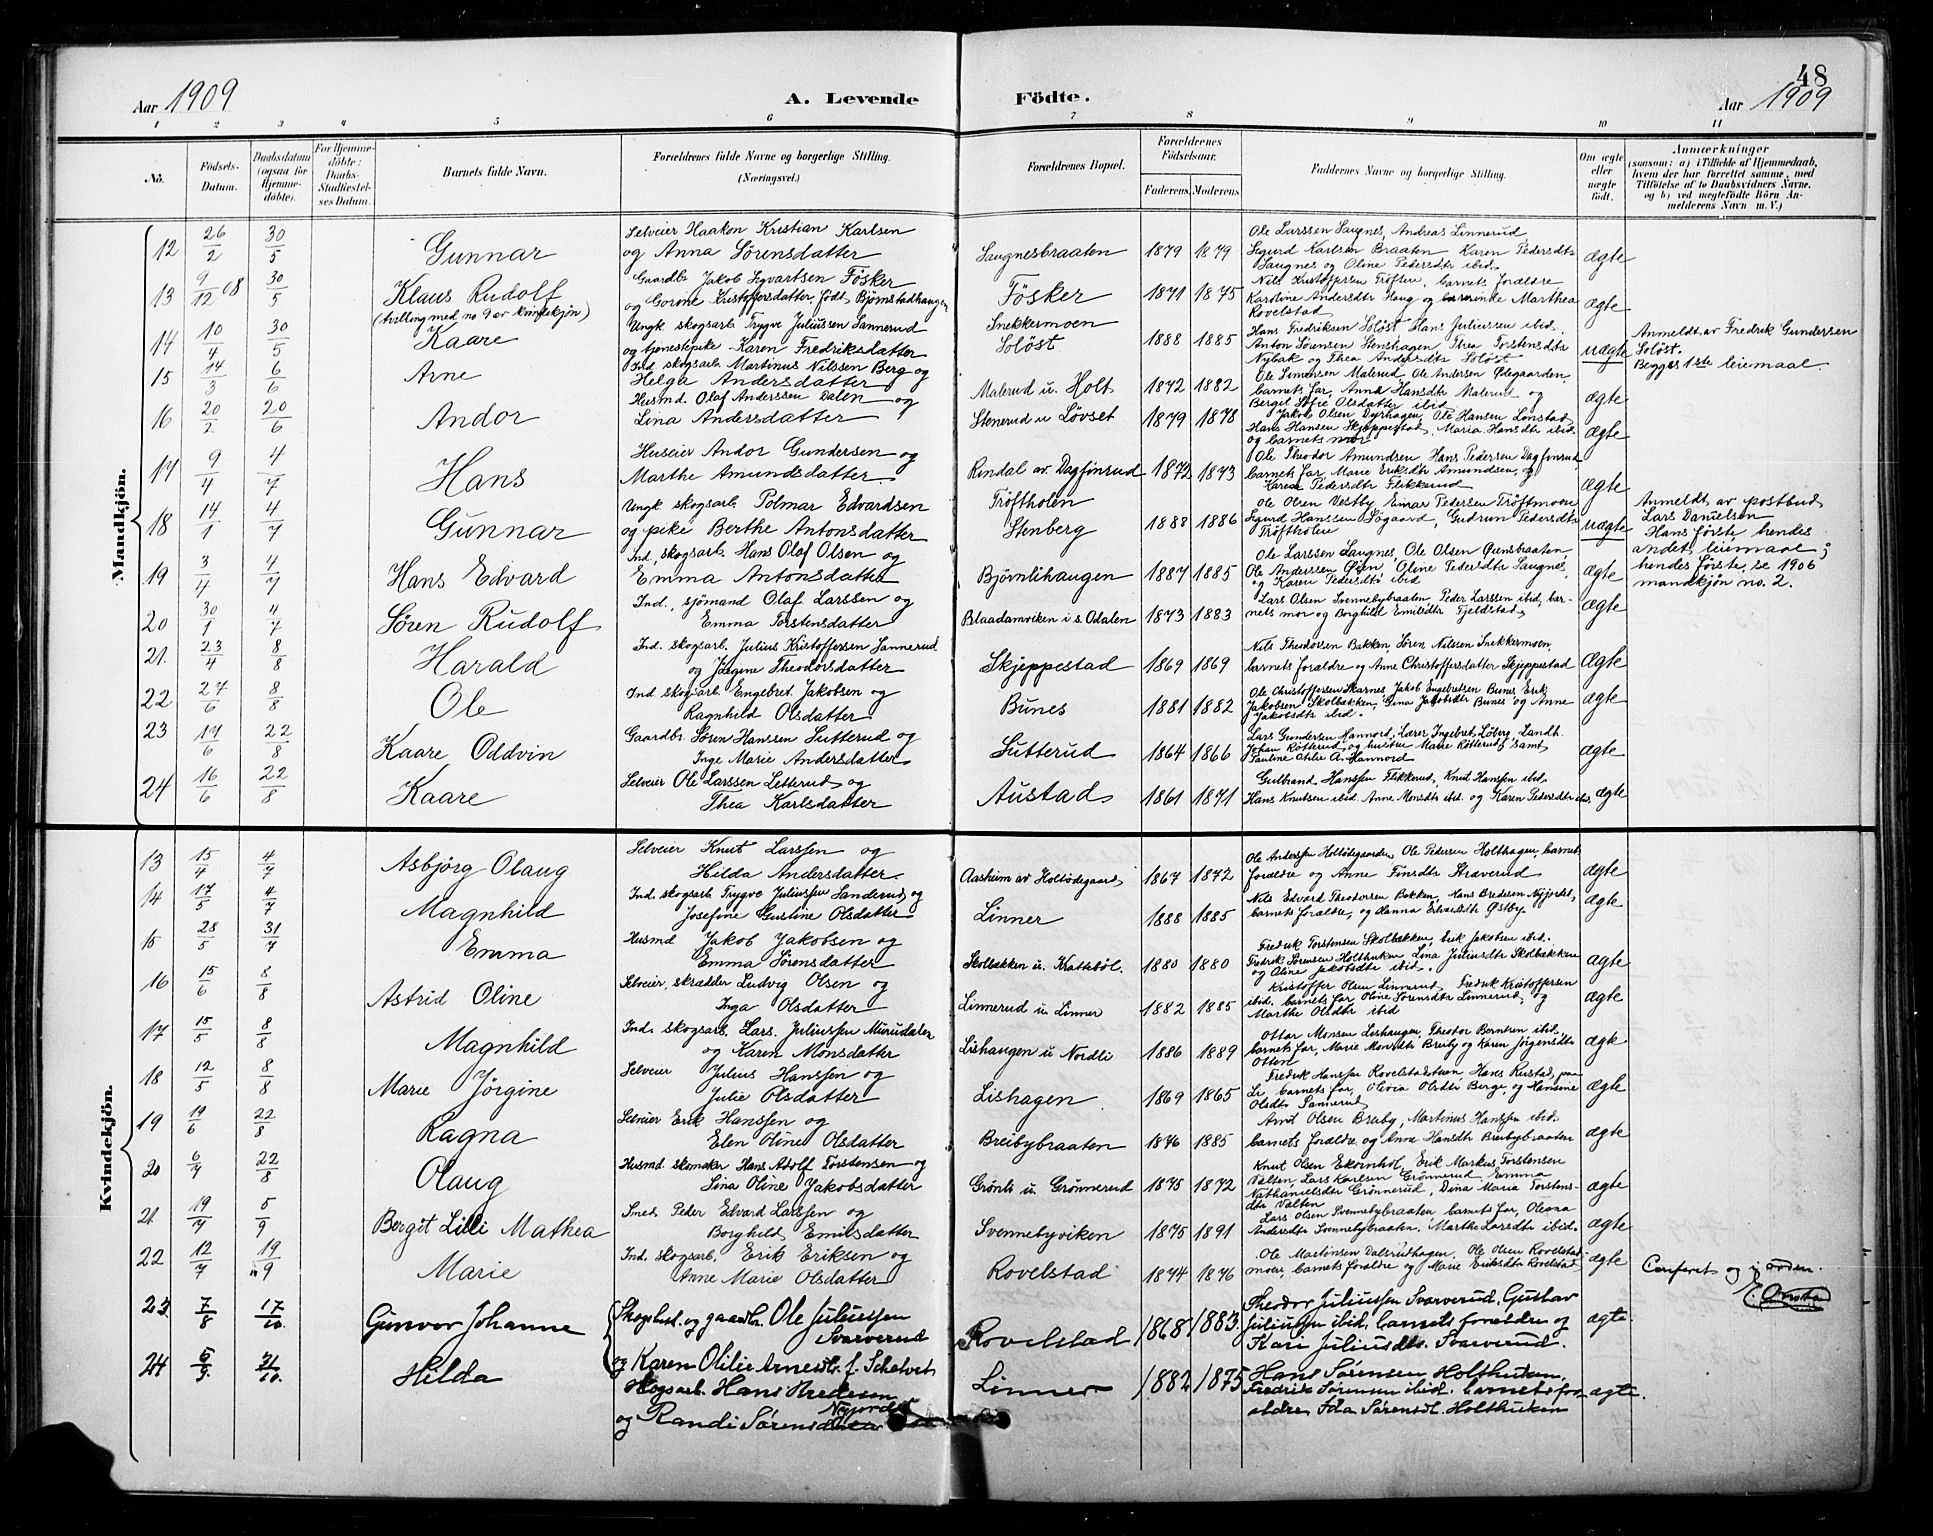 48
Aar 1909
A. Levende Födte.
Aar 1909
1 2 3 4 5 6 7 8 9 10 11
No.
Födsels-Datum.
Daabsdatum (ogsaa for Hjemme-döbte).
For Hjemme-döbte: Daabs-Stadfæstel-ses Datum.
Barnets fulde Navn.
Forældrenes fulde Navne og borgerlige Stilling. (Næringsvei.)
Forældrenes Bopæl.
Forældrenes Födselsaar.
Faderens. Moderens.
Faddernes Navne og borgerlige Stilling.
Om ægte eller uægte født.
Anmærkninger
(saasom: a) i Tilfælde af Hjemmedaab, hvem der har forrettet samme, med Tilföielse af to Daabsvidners Navne. og b) ved uægtefödte Börn An-melderens Navn m. V.)
Mandkjön.
12 26/2 30/5 Gunnar
Selveier Haakon Kristian Karlsen
og Anna Sörensdatter
Saugnesbraaten 1879 1879
Ole Larssen Saugnes, Andreas Linnerud
Sigurd Karlsen Braaten Karen Pedersdtr
Saugnes og Oline Pedersdtr ibid.
ægte
13 9/12 08 30/5 Klaus Rudolf
(tvilling med no 9 av kvindekjön)
Gaardbr. Jakob Sevartsen Fösker
og Gorone Kristoffersdatter, födt Björnstadhaugen
Fösker 1871 1875
Nils Kristoffersen Tröften, barnets forældre
Karoline Andersdtr Haug og Marthea
Rovelstad
ægte
14 10/4 30/5 Kaare
Ungk skogsarb. Trygve Juliussen Sannerud
og tjenestepike Karen Fredriksdatter
Snekkermoen
Solöst 1888 1885
Hans Fredriksen Solöst Hans Juliussen ibid.
Anton Sörensen Stenshagen Thea Torstensdtr
Nybak og Thea Andersdtr Solöst
uægte
Anmeldt av Fredrik Gundersen
Solöst.
Begges 1ste leiemaal.
15 14/3 6/6 Arne
Ind. skogsarb. Martinus Nilssen Berg og
Helga Andersdatter
Malerud u. Holt 1872 1882
Ole Simensen Malerud Ole Andersen Ödegaarden,
barnets far, Anna Hansdtr Malerud og
Bergit Sofie Olsdatter ibid
ægte
16 20/2 20/6 Andor
Husmd. Olaf Anderssen Dalen og
Lina Andersdatter
Stenerud u Lövset 1879 1878
Jakob Olsen Dyrhagen, Ole Hansen Lonstad
Hans Hansen Skjeppestad, Maria Hansdtr ibid.
og barnets mor
ægte
17 9/4 4/7 Hans
Huseier Andor Gundersen og
Marthe Amundsdatter
Rindal av Dagfinrud 1872 1873
Ole Theodor Amundsen Hans Pedersen Dagfinrud
barnets far, Marie Eriksdtr Amundsen, og
Karen Pedersdtr Flikkerud
ægte
18 14/1 4/7 Gunnar
Ungk skogsarb. Polmar Edvardsen
og pike Berthe Antonsdatter
Tröftholen
Stenberg 1888 1886
Ole Olsen Vestby Einar Pedersen Tröftmoen
Sigurd Hanssen Sögaard, Gudrun Pedersdtr
Tröftholen
uægte
Anmeldt av postbud
Lars Danielsen
Hans förste, hendes
andet leiemaal;
hendes förste, se 1906
mandkjön no. 2.
19 3/4 4/7 Hans Edvard
Ind., skogsarb. Hans Olaf Olsen og
Emma Antonsdatter
Björnlihaugen 1887 1885
Ole Larssen Saugnes, Ole Olsen Öiensbraaten,
Ole Anderssen Öien, Oline Pedersdtr Saugnes,
og Karen Pedersdtr ibid
ægte
20 30/1 4/7 Sören Rudolf
Ind., sjömand Olaf Larssen og
Emma Torstensdatter
Blaadamviken i s. Odalen 1873 1883
Lars Olsen Svennebybraaten, Peder Larssen ibid, bar-
nets mor og Borghild Emilsdtr Fjeldstad
ægte
21. 23/4 8/8 Harald
Ind. skogsarb. Julius Kristoffersen Sannerud
og Jörgine Theodorsdatter
Skjeppestad 1869 1869
Nils Theodorsen Bakken, Sören Nilssen Snekkermoen,
barnets forældre og Anne Christoffersdatter Skjeppestad
ægte
22 27/6 8/8 Ole
Ind skogsarb. Engebret Jakobsen og
Ragnhild Olsdatter
Bunes 1881 1882
Ole Christoffersen Skarnes, Jakob Engebretsen Bunes, Erik
Jakobsen Skolbækken, Gina Jakobsdtr Bunes og Anne
Jakobsdtr ibid.
ægte
23 17/6 22/8 Kaare Oddvin
Gaardbr. Sören Hanssen Sutterud og
Inge Marie Andersdatter
Sutterud 1864 1866
Lars Gundersen Mannord, Lærer Ingebret Löberg, Landh.
Johan Rötterud og hustru Marie Rötterud samt
Pauline Otilie A. Mannord
ægte
24 16/6 22/8 Kaare
Selveier Ole Larssen Setterud og
Thea Karlsdatter
Austad 1861 1871
Gulbrand Hanssen Flikkerud, Knut Hanssen ibid.
Hans Knutsen ibid. Anne Monsdtr ibid. og Karen Pedersdtr ibid.
ægte
Kvindekjön.
13 15/4 4/7 Asbjörg Olaug
Selveier Knut Larssen og
Hilda Andersdatter.
Aasheim av Holtödegaard 1867 1872
Ole Anderssen Holtödegaarden, Ole Pedersen Holthagen, barnets
forældre og Anne Finsdtr Straverud
ægte
14 17/5 4/7 Magnhild
Ind. skogsarb Trygve Juliussen Sanderud og
Josefine Gustine Olsdatter
Linner 1888 1885
Nils Edvard Theodorsen Bakken, Hans Bredesen Nyjordet,
barnets forældre, og Hanna Edvardsdtr Östby.
ægte
15 28/5 31/7 Emma
Husmd Jakob Jakobsen og
Emma Sörensdatter
Skolbækken u. Kratteböl. 1880 1880
Fredrik Torstensen Skolbækken, Erik Jakobsen ibid.
Fredrik Sörensen Holthuken, Lina Juliusdtr Skolbækken
og Oline Jakobsdtr ibid.
ægte
16 15/6 8/8 Astrid Oline
Selveier, skrædder Ludvig Olsen og
Inga Olsdatter
Linnerud u. Linner 1882 1885
Kristoffer Olsen Linnerud, Fredrik Kristoffersen
ibid. barnets far Oline Sörensdtr Linnerud, og
Marthe Olsdtr ibid
ægte
17 15/5 8/8 Magnhild
Ind. skogsarb. Lars Juliussen Murudalen
og Karen Monsdatter
Lishaugen u Nordli 1886 1889
Ottar Monsen Lishaugen, Theodor Berntsen ibid.,
barnets far, Marie Monsdtr Breiby og Karen Jörgensdtr
Otten
ægte
18 12/5 8/8 Marie Jörgine
Selveier Julius Hanssen og
Julie Olsdatter
Lishagen 1869 1865
Fredrik Hanssen Rovelstadstuen Hans Rustad, paa
Li, barnets far, Olivia Olsdtr Berge, og Hansine
Olsdtr Sannerud
ægte
19 19/6 22/8 Ragna
Selveier Erik Hanssen og
Elen Oline Olsdatter
Breibybraaten 1876 1885
Arnt Olsen Breiby, Martinus Hanssen ibid.
barnets forældre og Anne Hansdtr Breibybraaten
ægte
20 6/7 22/8 Olaug
Husmd skomaker Hans Adolf Torstensen og
Lina Oline Jakobsdatter
Grönli u. Grönnerud 1875 1872
Knut Olsen Ekornhol, Erik Markus Torstensen
Valten, Lars Karlsen Grönnerud, Emma
Nathanielsdtr Grönnerud, Dina Maria Torstens-
dtr Valten
ægte
21 19/7 5/9 Bergit Lilli Mathea
Smed. Peder Edvard Larssen og
Borghild Emilsdatter
Svennebyviken 1875 1891
Lars Olsen Svennebybraaten barnets far, Oleana
Andersdtr Svennebybraaten, Marthe Larsdtr ibid.
ægte
22 12/7 19/9 Marie
Ind. skogsarb. Erik Eriksen og
Anne Marie Olsdatter
Rovelstad 1874 1876
Ole Martinsen Dalsrudhagen, Ole Olsen Rovelstad
moen, barnets forældre og Marie Eriksdtr Rovelstad
ægte
Conferert og i orden.
23 7/8 17/10. Gunvor Johanne
Skogsbest. og gaardbr. Ole Juliussen
Svarverud
og Karen Otilie Arnesdtr. f. Schalvet
Rovelstad 1868 1883
Theodor Juliussen Svarverud, Gustav
Juliussen ibid, barnets forældre og
Kari Juliusdtr. Svarverud.
ægte
24 5/9. 31/10. Hilda
Skogsarb. Hans Bredesen
Nyjordet
og Randi Sörensdatter
Linner 1882 1875
Hans Sörensen Holthuken,
Fredrik Sörensen ibid. barnets for-
ældre Ida Sörensdt. Holthuken
ægte.